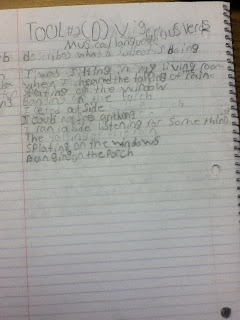 TOOL#2 (D) Vigorous Verbs
Musical language
describes what a subject is doing
I was sitting in my living room
when I heard the falling of rain
splating on the window
banging on the Porch
I went outside
I anything
I ran listening for something
The falling
SPlating on the windows
Banging on the Porch